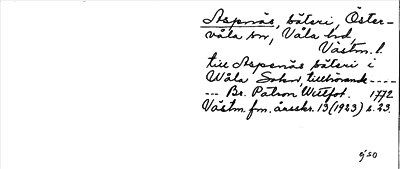 Aspenäs, säteri, Öster-
våla sn, Våla hd,
Västm. l.
till Aspenäs säteri i
Wåla Sokn, tillhörande ----
--- Br. Patron Wittfot. 1772.
Västm. fm. årsskr. 13 (1923) s. 23.